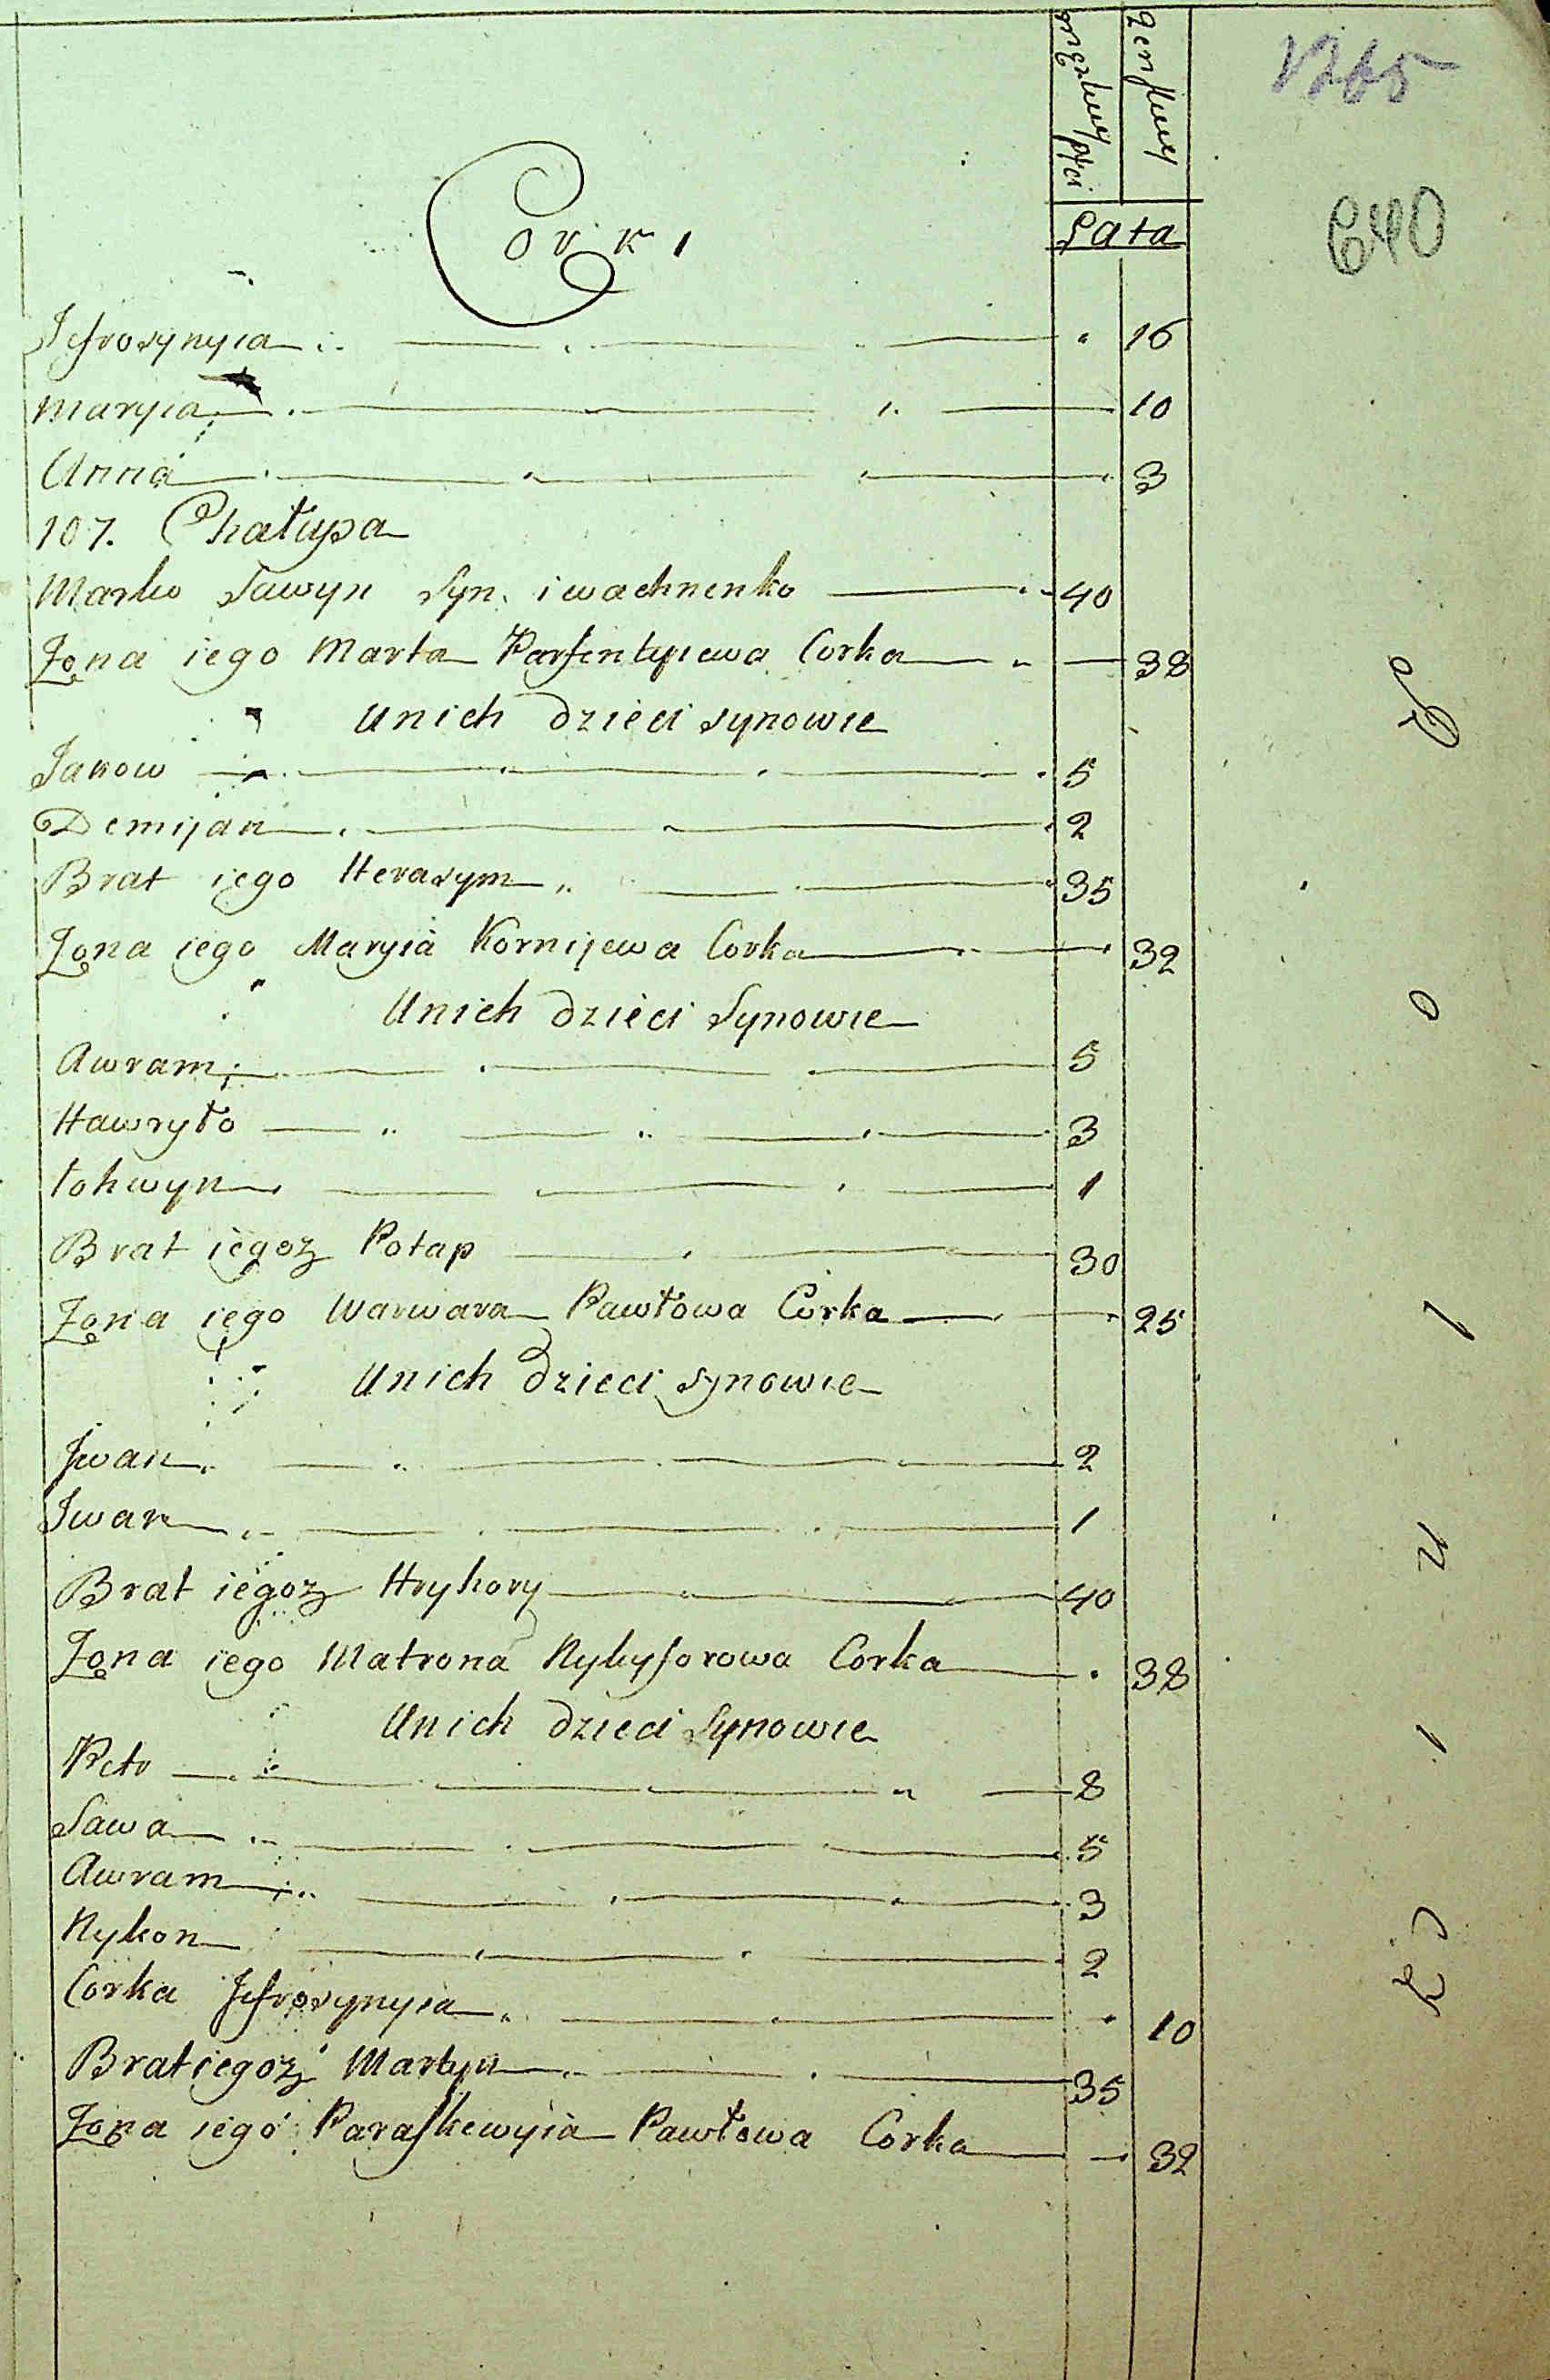 męzkiey płci
żenskiey
1265
640
Corki
Lata
Jefrosynyia 16
Maryia 10
Anna 3
107. Chałupa
Marko Sawyn Syn iwachnenko 40
Żona iego Marta Parfentyiewa Corka 38
Unich dzieci synowie
Jakow 5
Demijan 2
Brat iego Herasym 35
Żona iego Maryia Kornijewa Corka 32
Unich dzieci Synowie
Awram 5
Hawryło 3
Łohwyn 1
Brat iegoż Potap 30
Żona iego Warwara Pawłowa Corka 25
Unich dzieci synowie
Iwan 2
Iwan 1
Brat iegoż Hryhory 40
Żona iego Matrona Nykyforowa Corka 38
Unich dzieci Synowie
Petr 8
Sawa 5
Awram 3
Nykon 2
Corka Jefrosynyia 10
Brat iegoż Martyn 35
Żona iego Paraskewyia Pawłowa Corka 32